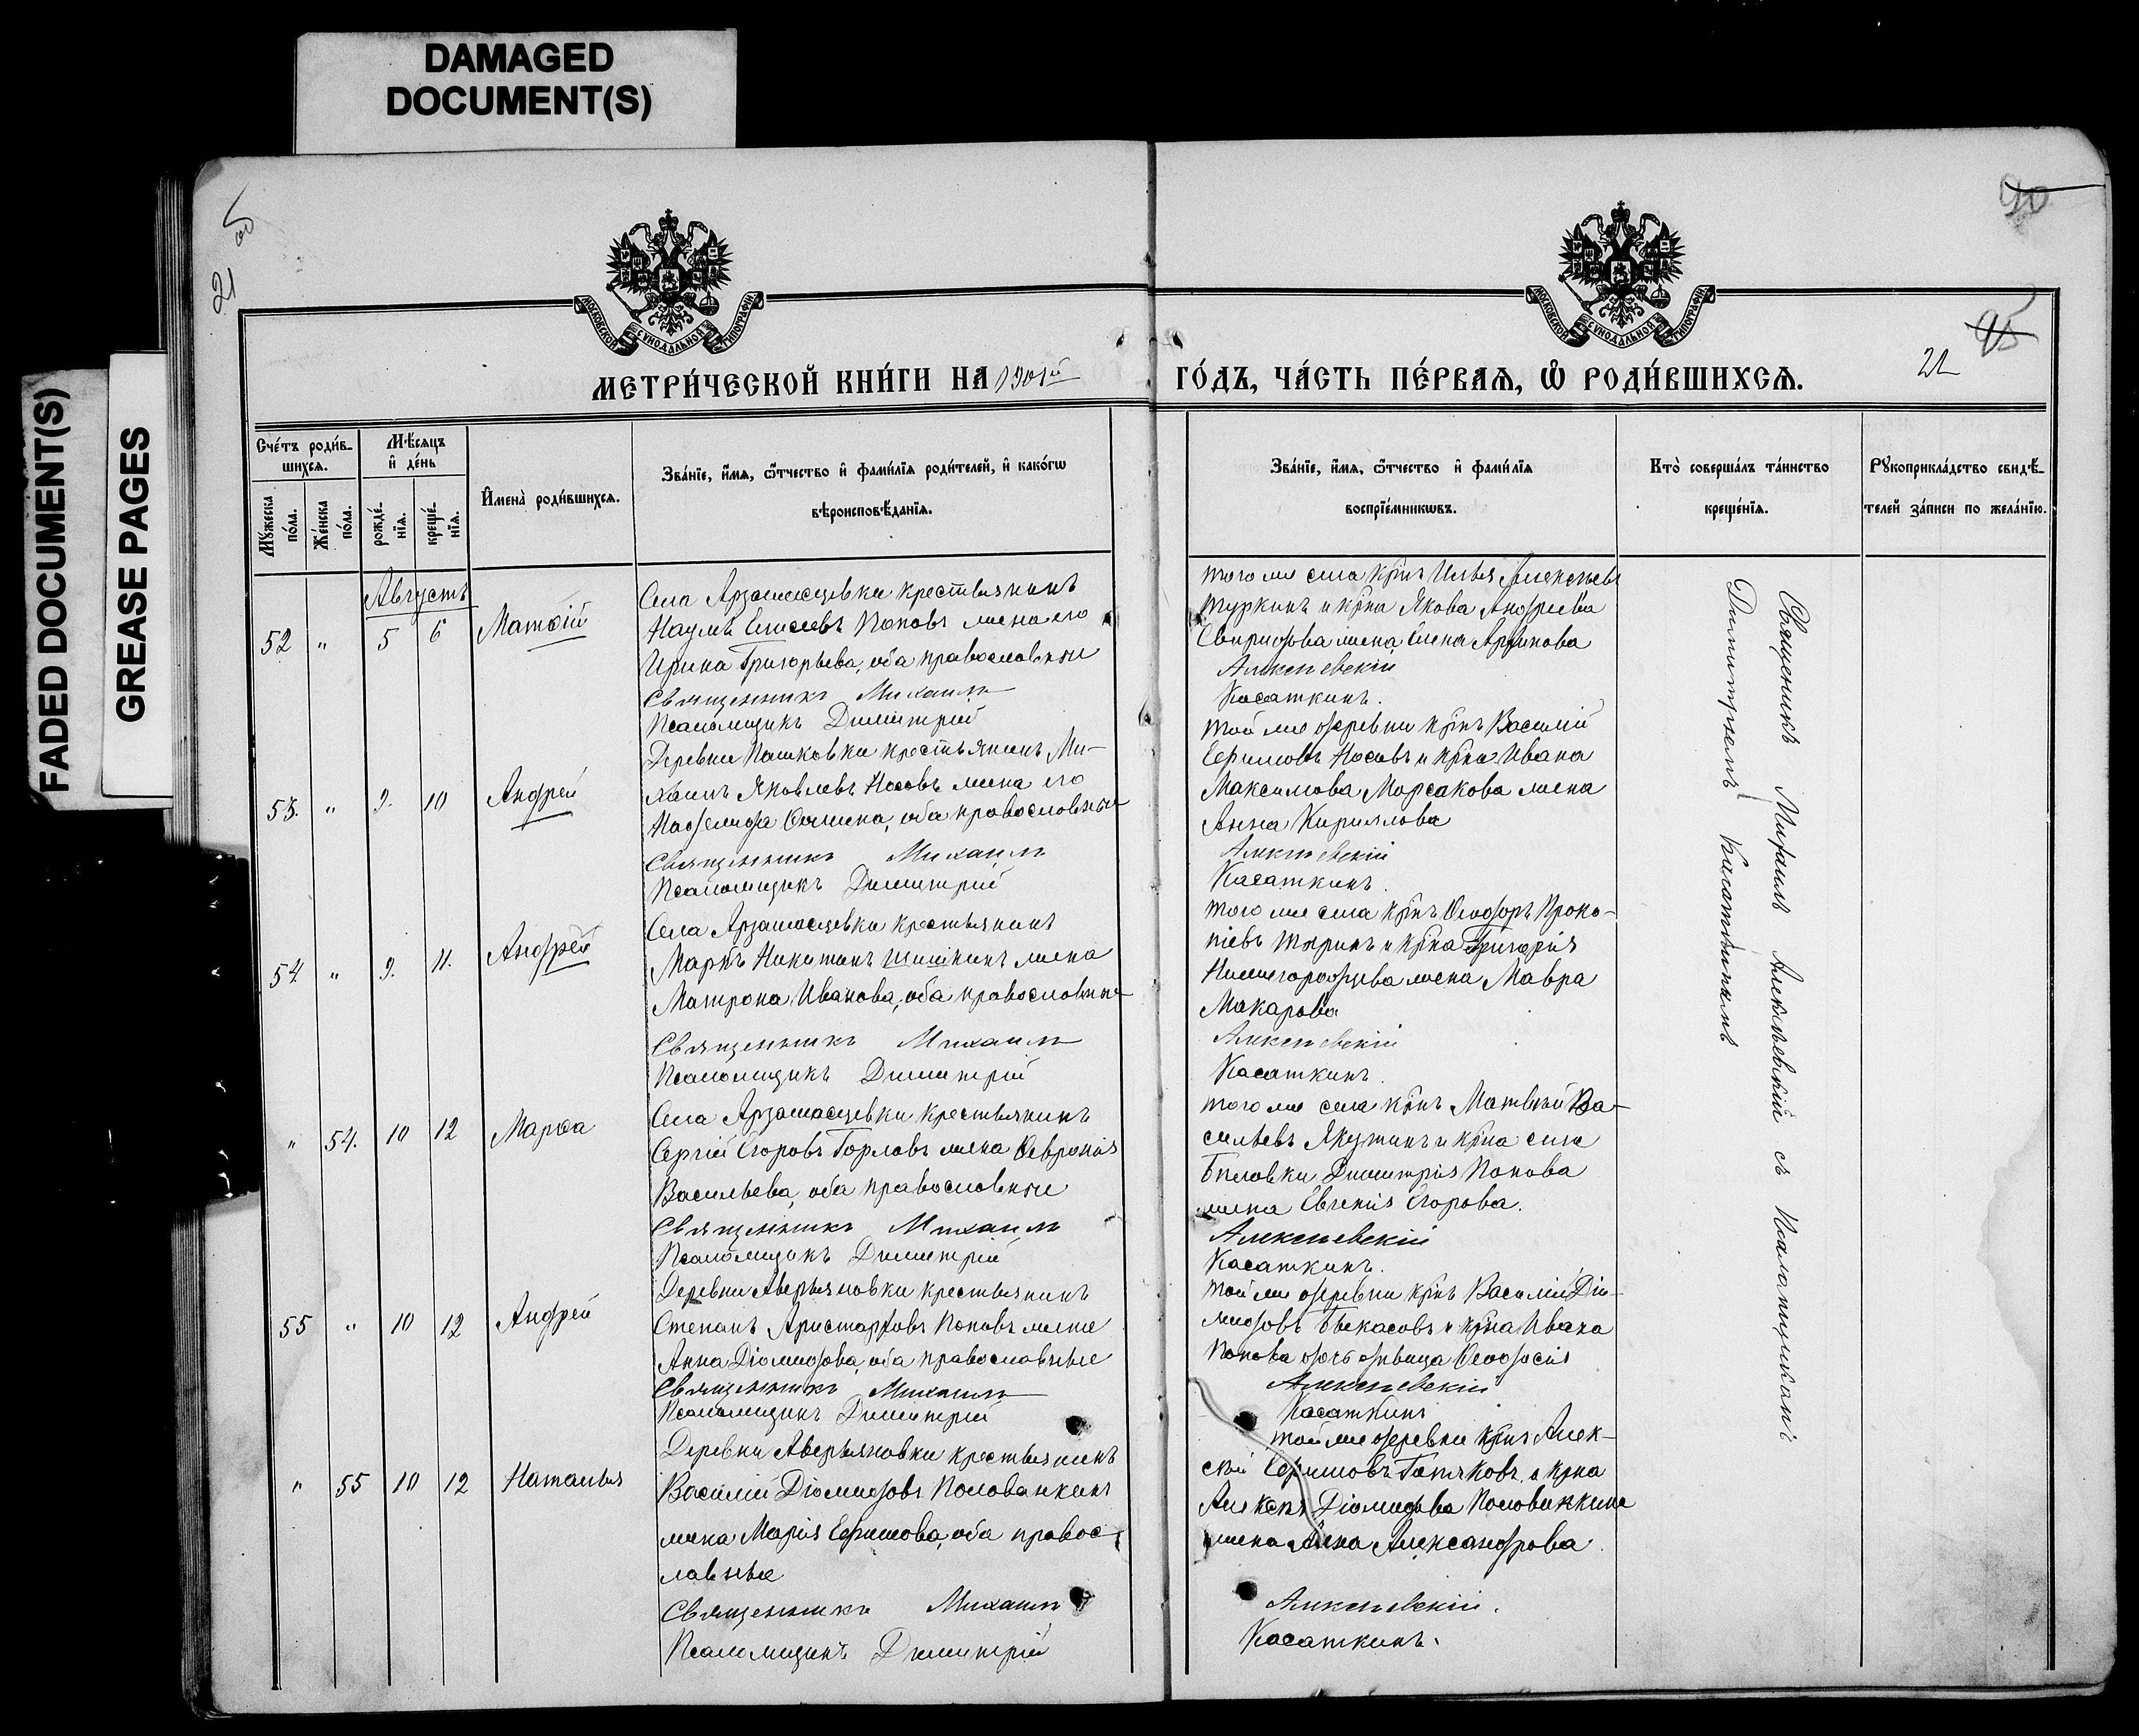 DAMAGED
DOCUMENT(S)
FADED DOCUMENT(S)
GREASE PAGES
21
90
95
22
МОСКОВСКОЙ СѴНОДАЛЬНОЙ ТИПОГРАФІИ
МОСКОВСКОЙ СѴНОДАЛЬНОЙ ТИПОГРАФІИ
МЕТРИ́ЧЕСКОЙ КНИ́ГИ НА 1901й ГО́ДЪ, ЧА́СТЬ ПЕ́РВАѦ, Ѡ҆ РОДИ́ВШИХСѦ.
Сче́тъ роди́в-
шихсѧ.
Мѣ́сѧцъ
и҆ де́нь
Мꙋ́жеска
по́ла.
Же́нска
по́ла.
рожде́-
нїѧ.
креще́-
нїѧ.
И҆мена̀ роди́вшихсѧ.
Зва́нїе, и҆́мѧ, ѻ҆́тчество и҆ фами́лїѧ роди́телей, и҆ како́гѡ
вѣроисповѣ́данїѧ.
Зва́нїе, и҆́мѧ, ѻ҆́тчество и҆ фами́лїѧ
воспрїе́мникѡвъ.
Кто̀ соверша́лъ та́инство
креще́нїѧ.
Рꙋкоприкла́дство свидѣ́-
телей за́писи по жела́нїю.
Августъ
52 " 5 6 Матѳій
Села Арзамасцевки крестьянинъ
Наумъ Елисеевъ Поповъ жена его
Ирина Григорьева, оба православные
Священникъ Михаилъ
Псаломщикъ Димитрій
того же села крнъ Илья Алексеевъ
Туркинъ и крна Якова Андреева
Свиридова жена Елена
Алексѣевскій
Касаткинъ.
53. " 9. 10 Андрей
Деревни Пашковки крестьянинъ Ми-
хаилъ Яковлевъ Носовъ жена его
Надежда Фомина, оба православные
Священникъ Михаилъ
Псаломщикъ Димитрій
той же деревни крнъ Василій
Ефимовъ Носовъ и крна Ивана
Максимова Морсакова жена
Анна Кириллова
Алексѣевскій
Касаткинъ.
54. " 9. 11. Андрей
Села Арзамасцевки крестьянинъ
Маркъ Никитинъ Шишкинъ жена
Матрона Иванова, оба православные
Священникъ Михаилъ
Псаломщикъ Димитрій
того же села крнъ Ѳеодоръ Проко-
піевъ Тюринъ и крна Григорія
Нижегородцева жена Мавра
Макарова
Алексѣевскій
Касаткинъ.
" 54. 10 12 Марѳа
Села Арзамасцевки крестьянинъ
Сергій Егоровъ Горловъ жена Февронія
Васильева, оба православные
Священникъ Михаилъ
Псаломщикъ Димитрій
того же села крнъ Матвѣй Ва-
сильевъ Якушинъ и крна села
Бѣловки Димитрія Попова
жена Евгенія Егорова.
Алексѣевскій
Касаткинъ.
55 " 10 12 Андрей
Деревни Аверьяновки крестьянинъ
Степанъ Аристарховъ Поповъ жена
Анна Діомидова, оба православные
Священникъ Михаилъ
Псаломщикъ Димитрій
той же деревни крнъ Василій Діо-
мидовъ Бекасовъ и крна Ивана
Попова дочь дѣвица Ѳеодосія
Алексѣевскій
Касаткинъ
" 55 10 12 Наталья
Деревни Аверьяновки крестьянинъ
Василій Діомидовъ Половинкинъ
жена Марія Ефимова, оба правос-
лавные
Священникъ Михаилъ
Псаломщикъ Димитрій
той же деревни крнъ Алек-
сѣй Ефимовъ и крна
Алексѣя Діомидова Половинкина
жена Анна Александрова.
Алексѣевскій.
Касаткинъ.
Священникъ Михаилъ Алексѣевскій съ Псаломщикомъ
Димитріемъ Касаткинымъ